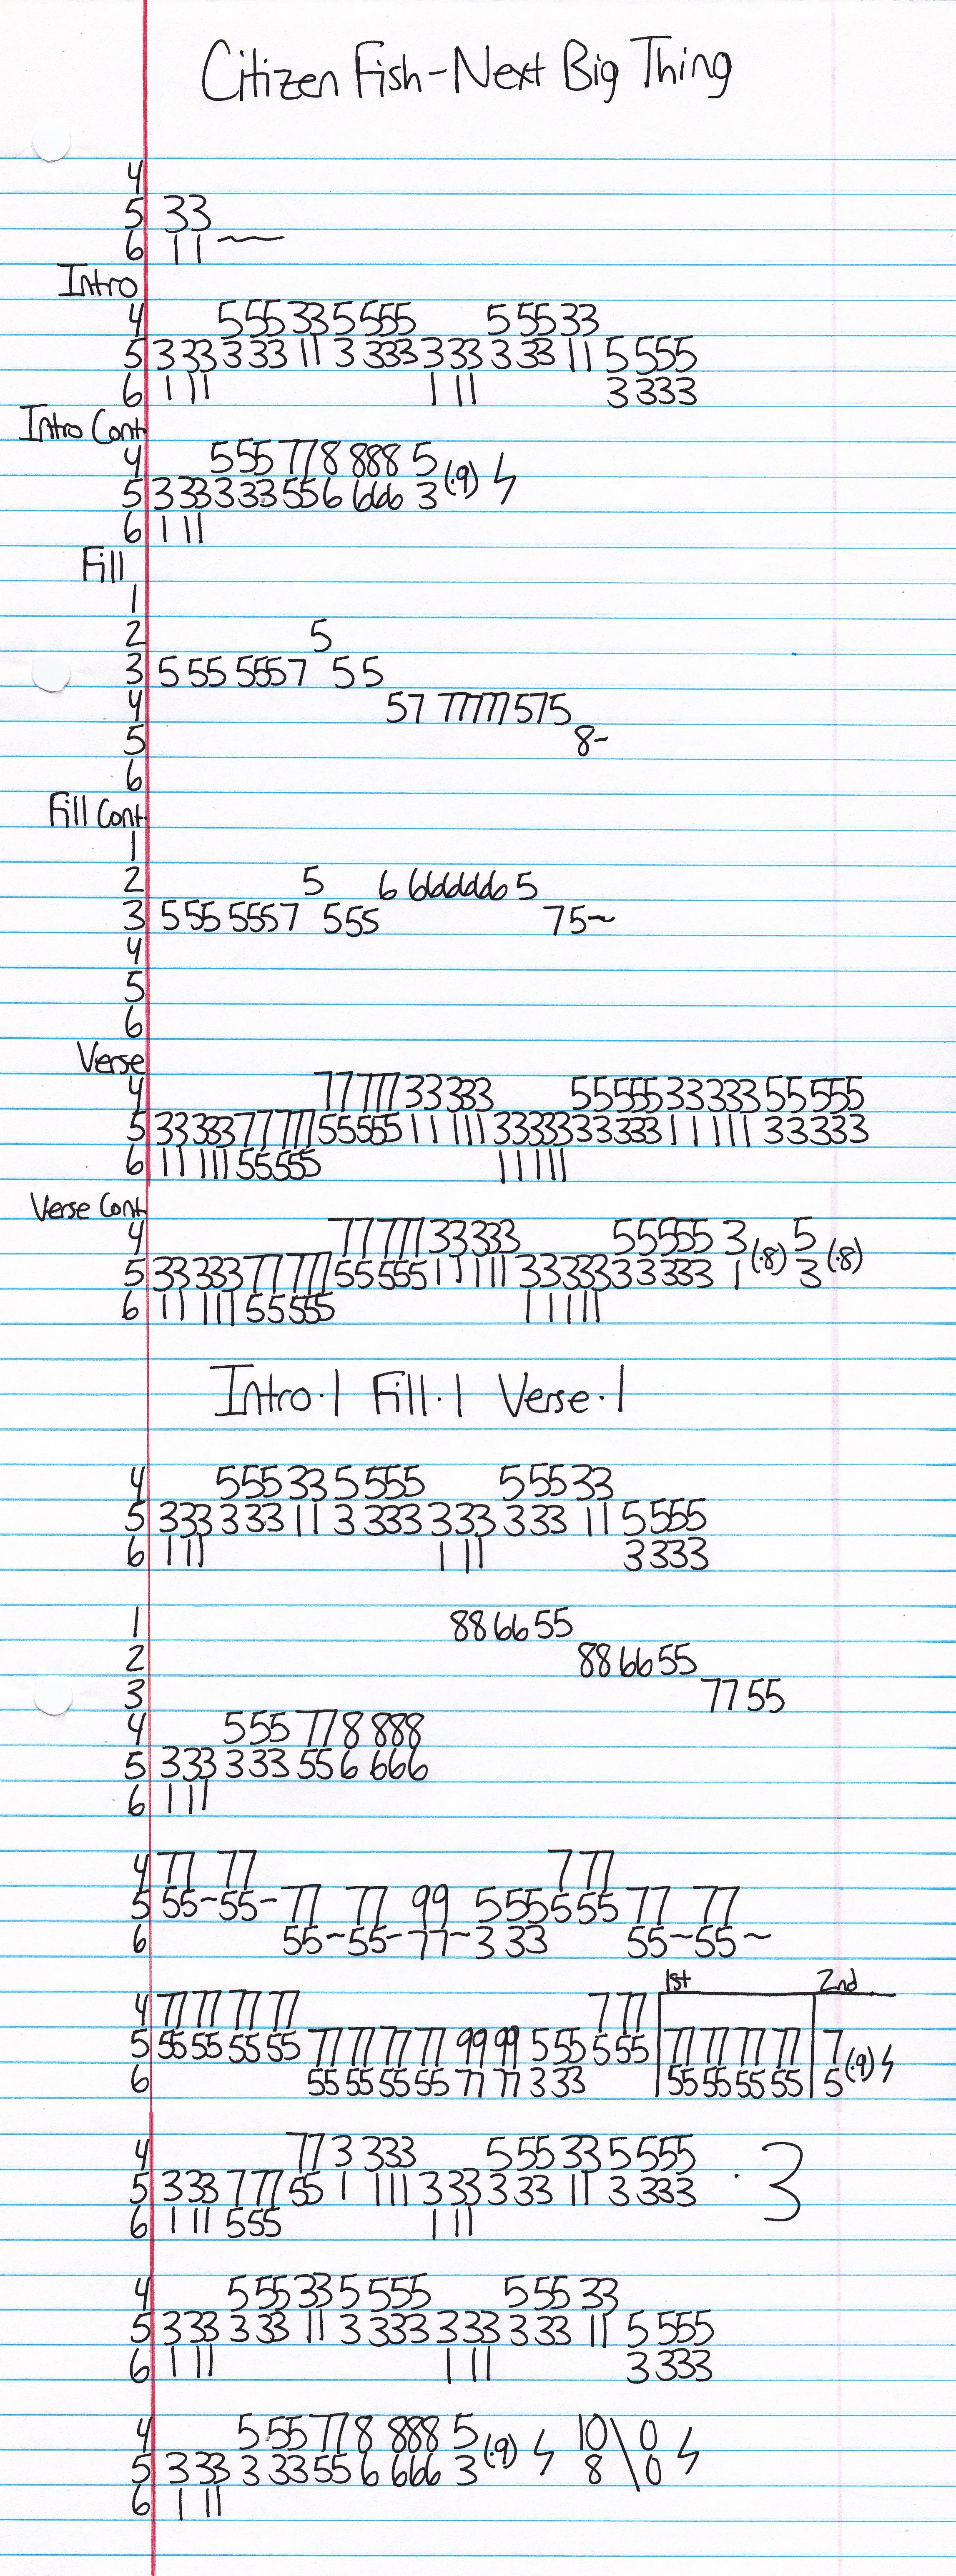 Citizen Fish-Next Big Thing
4
5 33
6 11 ~
Intro
4 555 33 5 555 5 55 33
5 333 3 33 11 3 333 333 3 33 11 5 555
6 1 11 1 11 3 333
Intro Cont.
4 555 77 8 888 5
5 333 333 55 6 666 3 (·9) ϟ
6 1 11
Fill
1
2 5
3 5 55 5557 55
4 57 77777 575
5 8~
6
Fill Cont.
1
2 5 6 6666666 5
3 555 5557 555 75~
4
5
6
Verse
4 77 777 33 333 55555 33333 55 555
5 33 333 77 777 55555 11 111 33333 33333 11 111 33333
6 11 111 55555 11111
Verse Cont.
4 77 777 33333 55555 3 5
5 33 333 77 777 55 555 11 111 33 333 33 333 1 (·8) 3 (·8)
6 11 111 55555 11111
Intro·1 Fill·1 Verse·1
4 555 33 5 555 5 55 33
5 333 3 33 11 3 333 333 3 33 11 5 555
6 1 11 1 11 3 333
1 88 66 55
2 88 66 55
3 77 55
4 555 77 8 888
5 333 3 33 55 6 666
6 1 11
4 77 77 7 77
5 55~55- 77 77 99 5 55 5 55 77 77
6 55~55-77~3 33 55~55~
1st 2nd
4 77 77 77 77 7 77
5 55 55 55 55 77 77 77 77 99 99 5 55 5 55 77 77 77 77 7 (·9) ϟ
6 55 55 55 55 77 77 3 33 55 55 55 55 5
4 77 3 333 5 55 33 5 555
5 333 7 77 55 1 111 333 3 33 11 3 333 · 3
6 1 11 555 1 11
4 5 55 33 5 555 5 55 33
5 333 3 33 11 3 333 333 3 33 11 5 555
6 1 11 1 11 3 333
4 5 55 77 8 888 5 10 \ 0
5 3 33 3 33 55 6 666 3 (·9) ϟ 8 \ 0 ϟ
6 1 11